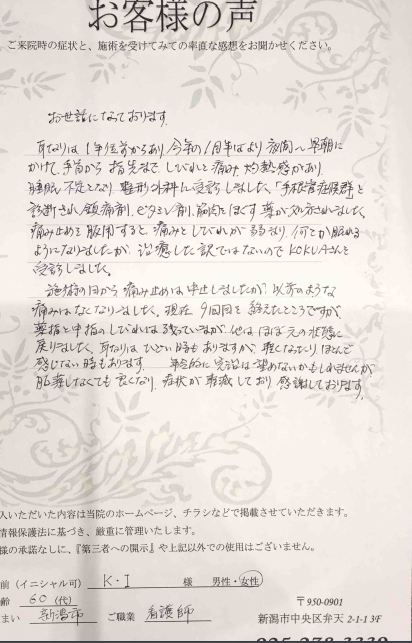 お客様の声
ご来院時の症状と、施術を受けてみての率直な感想をお聞かせください。
お世話になっております。
耳なりは1年位前からあり、今年の1月半ばより夜間〜早朝に
かけて、手首から指先まで、しびれと痛み、灼熱感があり
睡眠不足となり、整形外科に受診しました。「手根管症候群」と
診断され、鎮痛剤、ビタミン剤、筋肉をほぐす薬が処方されました。
痛み止めを服用すると、痛みとしびれが弱まり、何とか眠れる
ようになりましたが、治癒した訳ではないのでKOKUAさんを
受診しました。
施術の日から痛み止めは中止しましたが、以前のような
痛みはなくなりました。現在、9回目を終えたところですが、
薬指と中指のしびれは残っていますが、他はほぼ元の状態に
戻りました。耳なりは、ひどい時もありますが、軽くなったり、ほとんど
感じない時もあります。年令的に完治は望めないかもしれませんが
服薬しなくても良くなり、症状が軽減しており感謝しております。
入いただいた内容は当院のホームページ、チラシなどで掲載させていただきます。
情報保護法に基づき、厳重に管理いたします。
様の承諾なしに、『第三者への開示』や上記以外での使用はございません。
前（イニシャル可） K・I 様 男性・女性
齢 60（代） 〒950-0901
まい 新潟市 ご職業 看護師 新潟市中央区弁天2-1-1 3F